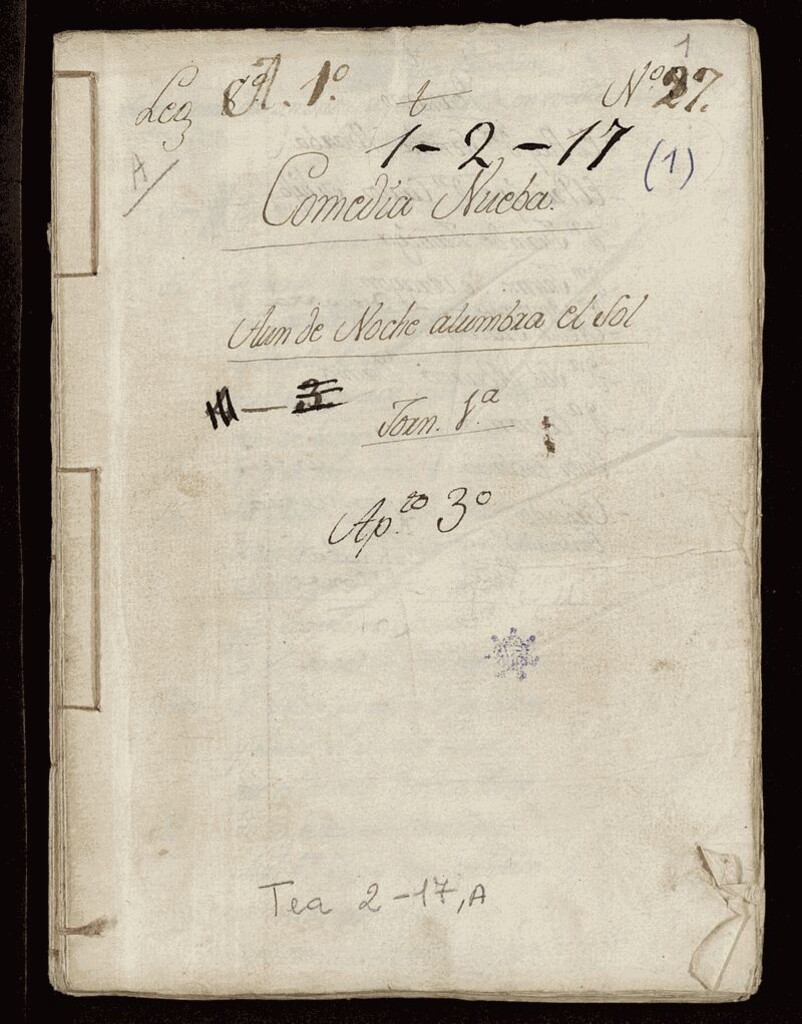 1
Leg 1.º Nº 27.
1-2,-17 (1)
A
Comedia Nueba.
Aun de Noche alumbra el Sol
Jorn. 1.ª
Ap.to 3º
Tea 2-17, A